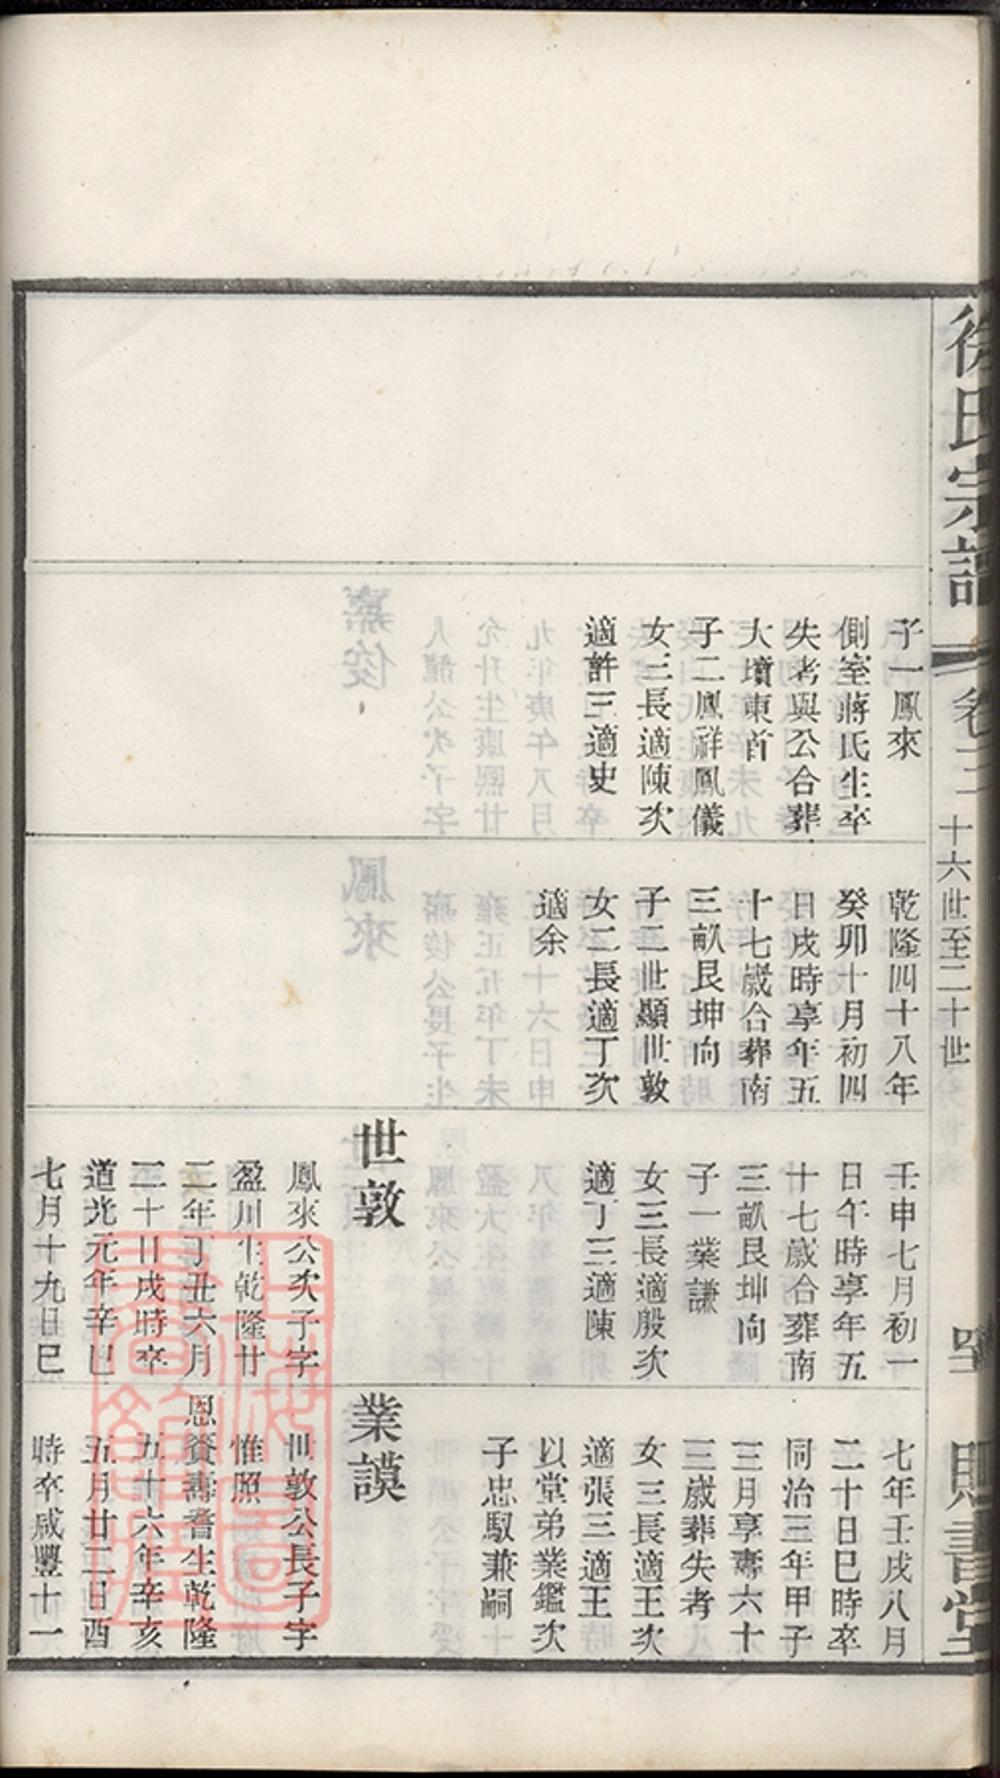 徐氏宗譜
卷二
十六世至二十世
賜書堂
子一鳳來
側室蔣氏生卒
失考與公合葬
大墳東首
子二鳳祥鳳儀
女三長適陳次
適許三適史
乾隆四十八年
癸卯十月初四
日戌時享年五
十七歲合葬南
三畝艮坤向
子二世顯世敦
女二長適丁次
適余
壬申七月初一
日午時享年五
十七歲合葬南
三畝艮坤向
子一業謙
女三長適殷次
適丁三適陳
世敦
鳳來公次子字
盈川生乾隆廿
二年丁丑六月
二十日戌時卒
道光元年辛巳
七月十九日巳
七年壬戌八月
二十日巳時卒
同治三年甲子
三月享壽六十
三歲葬失考
女三長適王次
適張三適王
以堂弟業鑑次
子忠馭兼嗣
業謨
世敦公長子字
惟照
恩賚壽耆生乾隆
五十六年辛亥
五月廿二日酉
時卒咸豐十一